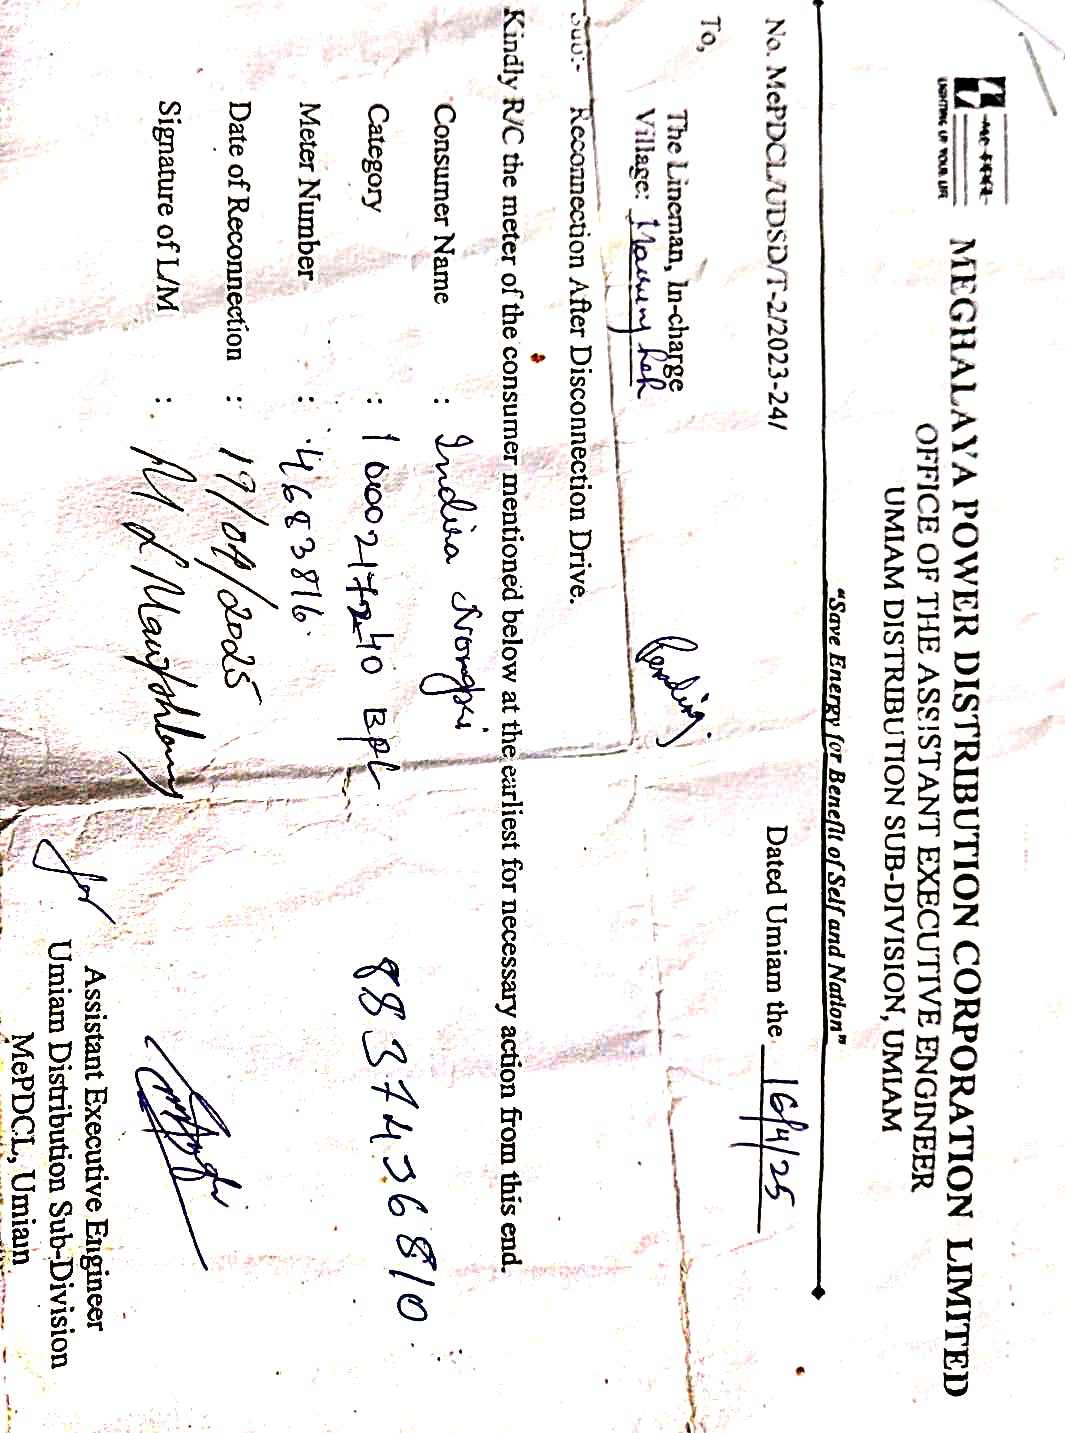 MEGHALAYA POWER DISTRIBUTION CORPORATION LIMITED
OFFICE OF THE ASSISTANT EXECUTIVE ENGINEER
UMIAM DISTRIBUTION SUB-DIVISION, UMIAM
LIGHTING UP YOUR LIFE
"Save Energy for Benefit of Self and Nation"
No. MePDCL/UDSD/T-2/2023-24/ Dated Umiam the 16/4/25
To,
The Lineman, In-charge
Village:
Pending
Sub:- Reconnection After Disconnection Drive.
Kindly R/C the meter of the consumer mentioned below at the earliest for necessary action from this end.
Consumer Name : Indira Nongpsi
Category : 1000217240 BPL 8837436810
Meter Number : 4683816
Date of Reconnection : 19/04/2025
Signature of L/M :
for Assistant Executive Engineer
Umiam Distribution Sub-Division
MePDCL, Umiam